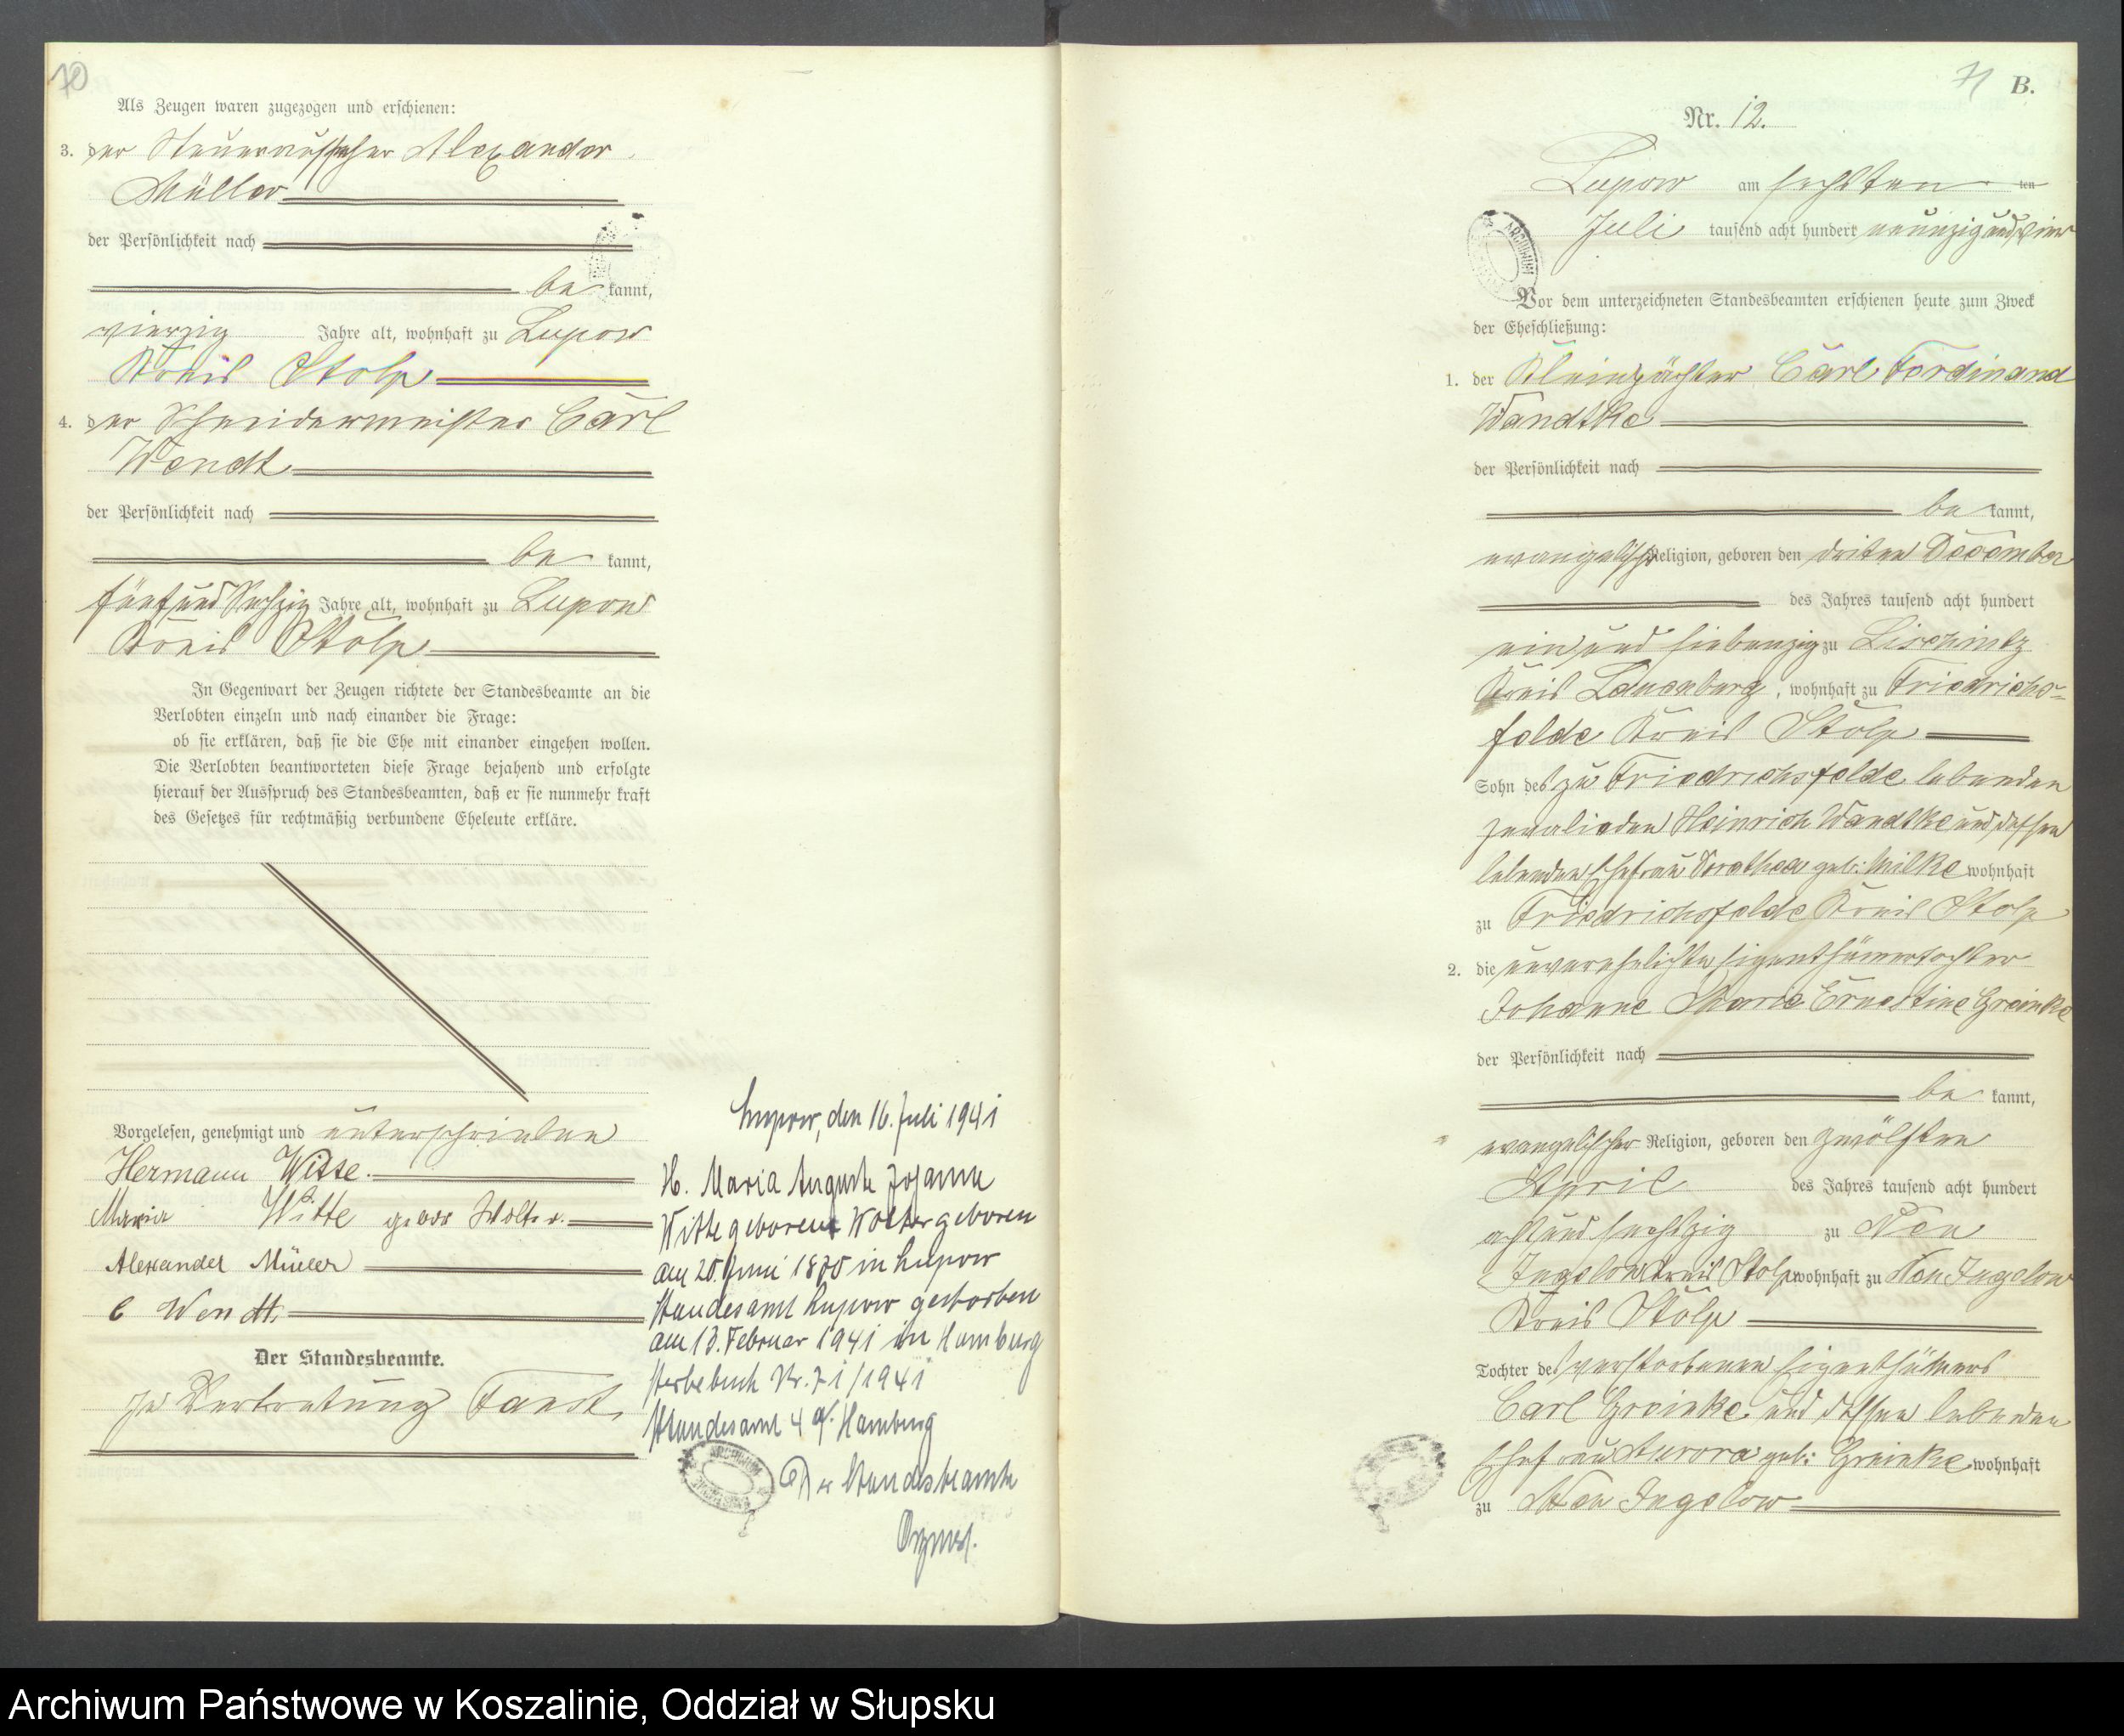 70
Als Zeugen waren zugezogen und erschienen:
3. der Steueraufseher Alexander
Müller
der Persönlichkeit nach
be kannt,
vierzig Jahre alt, wohnhaft zu Lupow
Kreis Stolp
4. der Schneidermeister Carl
Wendt
der Persönlichkeit nach
be kannt,
fünfund sechzig Jahre alt, wohnhaft zu Lupow
Kreis Stolp
In Gegenwart der Zeugen richtete der Standesbeamte an die
Verlobten einzeln und nach einander die Frage:
ob sie erklären, daß sie die Ehe mit einander eingehen wollen.
Die Verlobten beantworteten diese Frage bejahend und erfolgte
hierauf der Ausspruch des Standesbeamten, daß er sie nunmehr kraft
des Gesetzes für rechtmäßig verbundene Eheleute erkläre.
Vorgelesen, genehmigt und unterschrieben
Hermann Witte.
Maria Witte geb Wolter.
Alexander Müller
C Wendt
Der Standesbeamte.
In Vertretung
Lupow, den 16. Juli 1941
H. Maria Auguste Johanne
Witte geborene Wolter geboren
am 20. Juni 1870 in Lupow
Standesamt Lupow gestorben
am 13. Februar 1941 in Hamburg
Sterbebuch Nr. 71/1941
Standesamt 4 a. Hamburg
Der Standesbeamte
71 B.
Nr. 12.
Lupow am sechsten ten
Juli tausend acht hundert neunzig und vier
Vor dem unterzeichneten Standesbeamten erschienen heute zum Zweck
der Eheschließung:
1. der Kleinpächter Carl Ferdinand
Wandtke
der Persönlichkeit nach
be kannt,
evangelischer Religion, geboren den dritten December
des Jahres tausend acht hundert
ein und siebenzig zu Lischnitz
Kreis Lauenburg, wohnhaft zu Friedrichs-
felde Kreis Stolp
Sohn des zu Friedrichsfelde lebenden
Invaliden Heinrich Wandtke und dessen
lebenden Ehefrau Dorothea geb: Milke wohnhaft
zu Friedrichsfelde Kreis Stolp
2. die unverehelichte Eigenthümertochter
Johanne Marie Ernestine Greinke
der Persönlichkeit nach
be kannt,
evangelischer Religion, geboren den zwölften
April des Jahres tausend acht hundert
acht und sechszig zu Neu
Jugelow Kreis Stolp wohnhaft zu Neu Jugelow
Kreis Stolp
Tochter des verstorbenen Eigenthümers
Carl Greinke und dessen lebenden
Ehefrau Aurora geb: Greinke wohnhaft
zu Neu Jugelow
Archiwum Państwowe w Koszalinie, Oddział w Słupsku